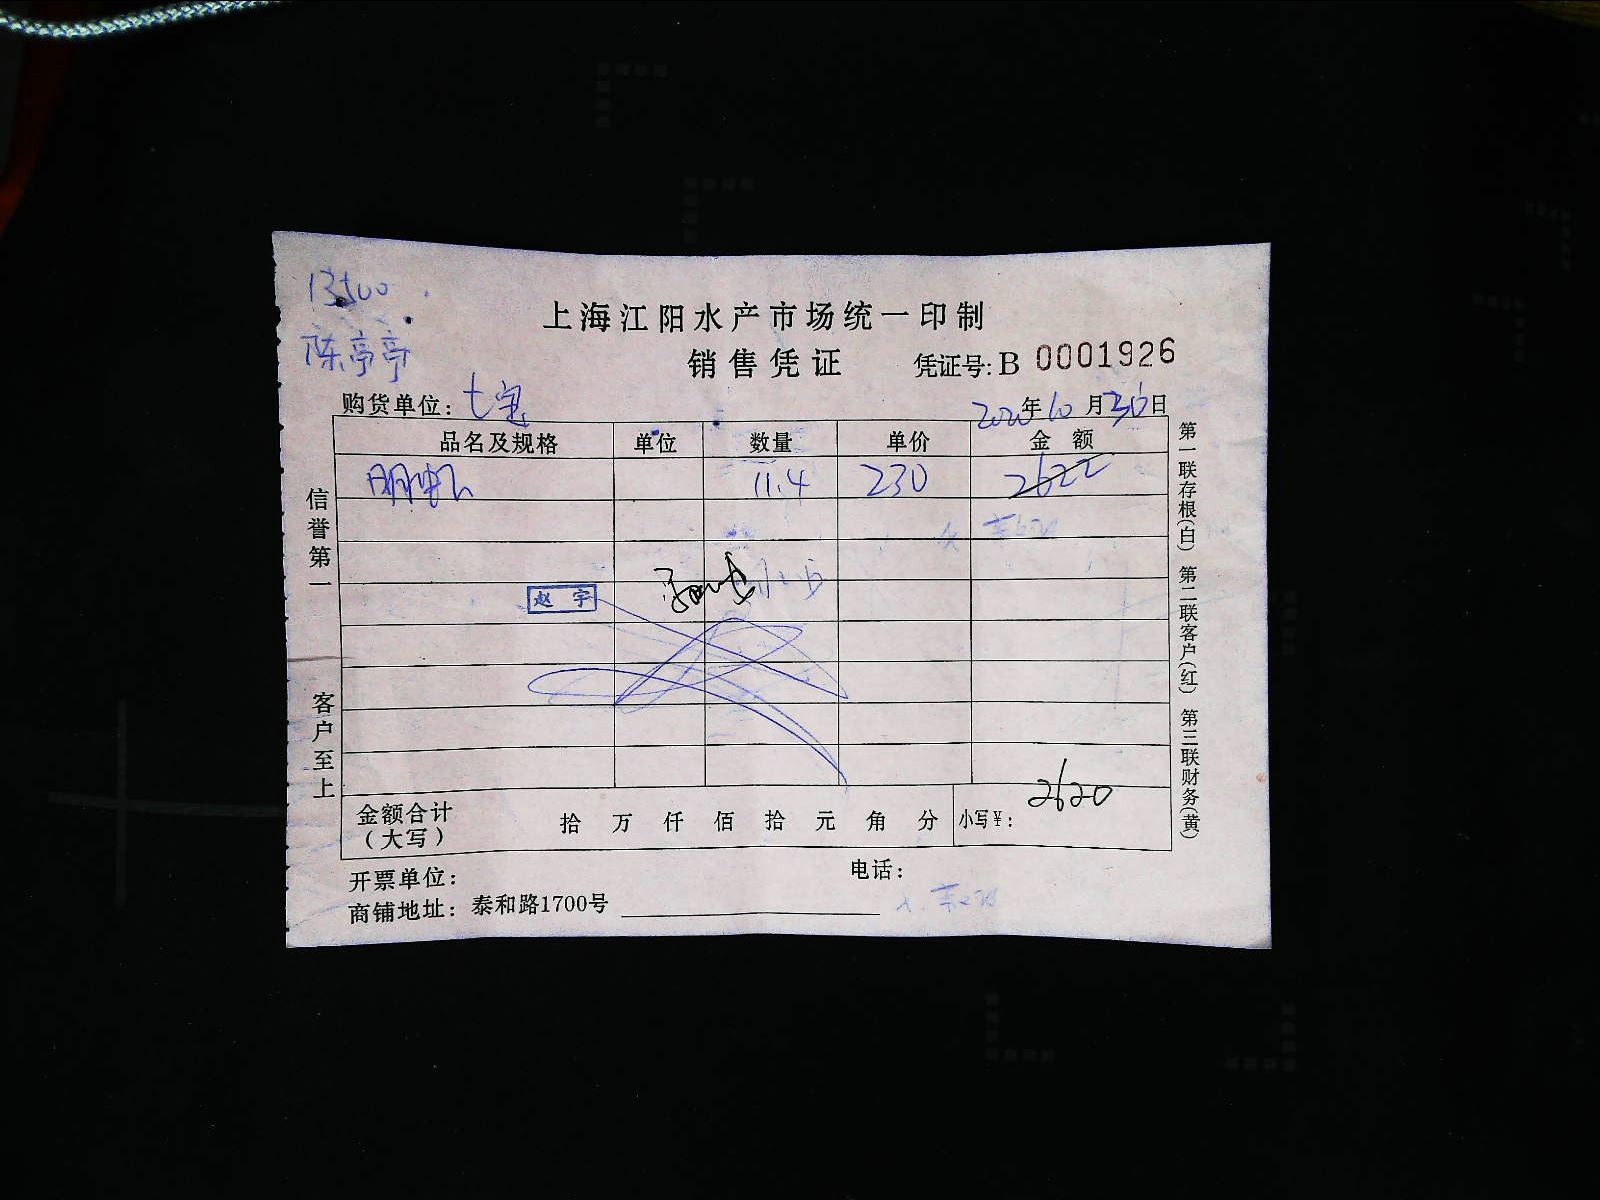 13500
陈亭亭
上海江阳水产市场统一印制
销售凭证 凭证号: B 0001926
购货单位: 七宝 2020年10月30日
品名及规格 单位 数量 单价 金额
11.4 230 2622
赵宇
金额合计(大写) 拾 万 仟 佰 拾 元 角 分 小写¥: 2620
开票单位: 电话:
商铺地址: 泰和路1700号
信誉第一 客户至上
第一联存根(白) 第二联客户(红) 第三联财务(黄)